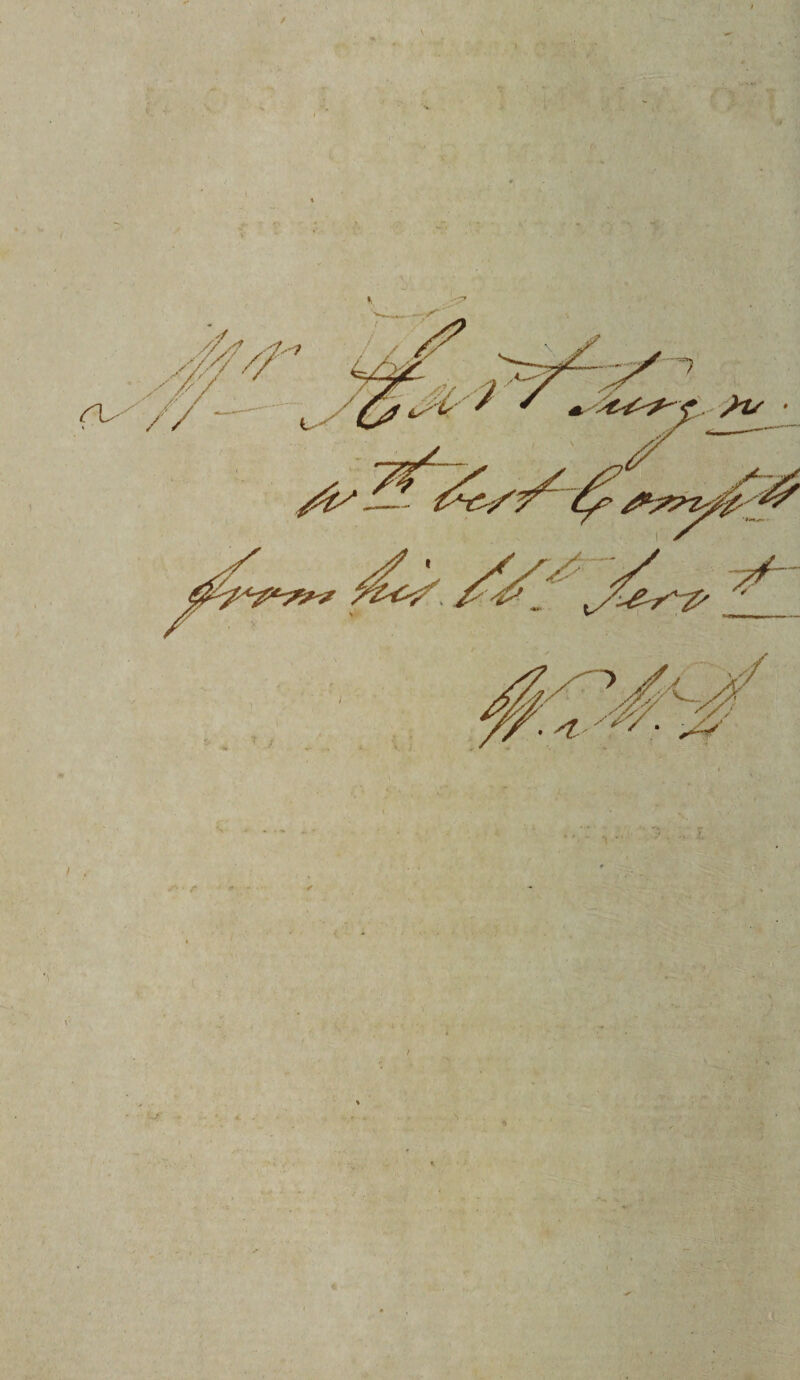 Mr Hart Surgn.
wt. best Compts
from his Ob. Servt